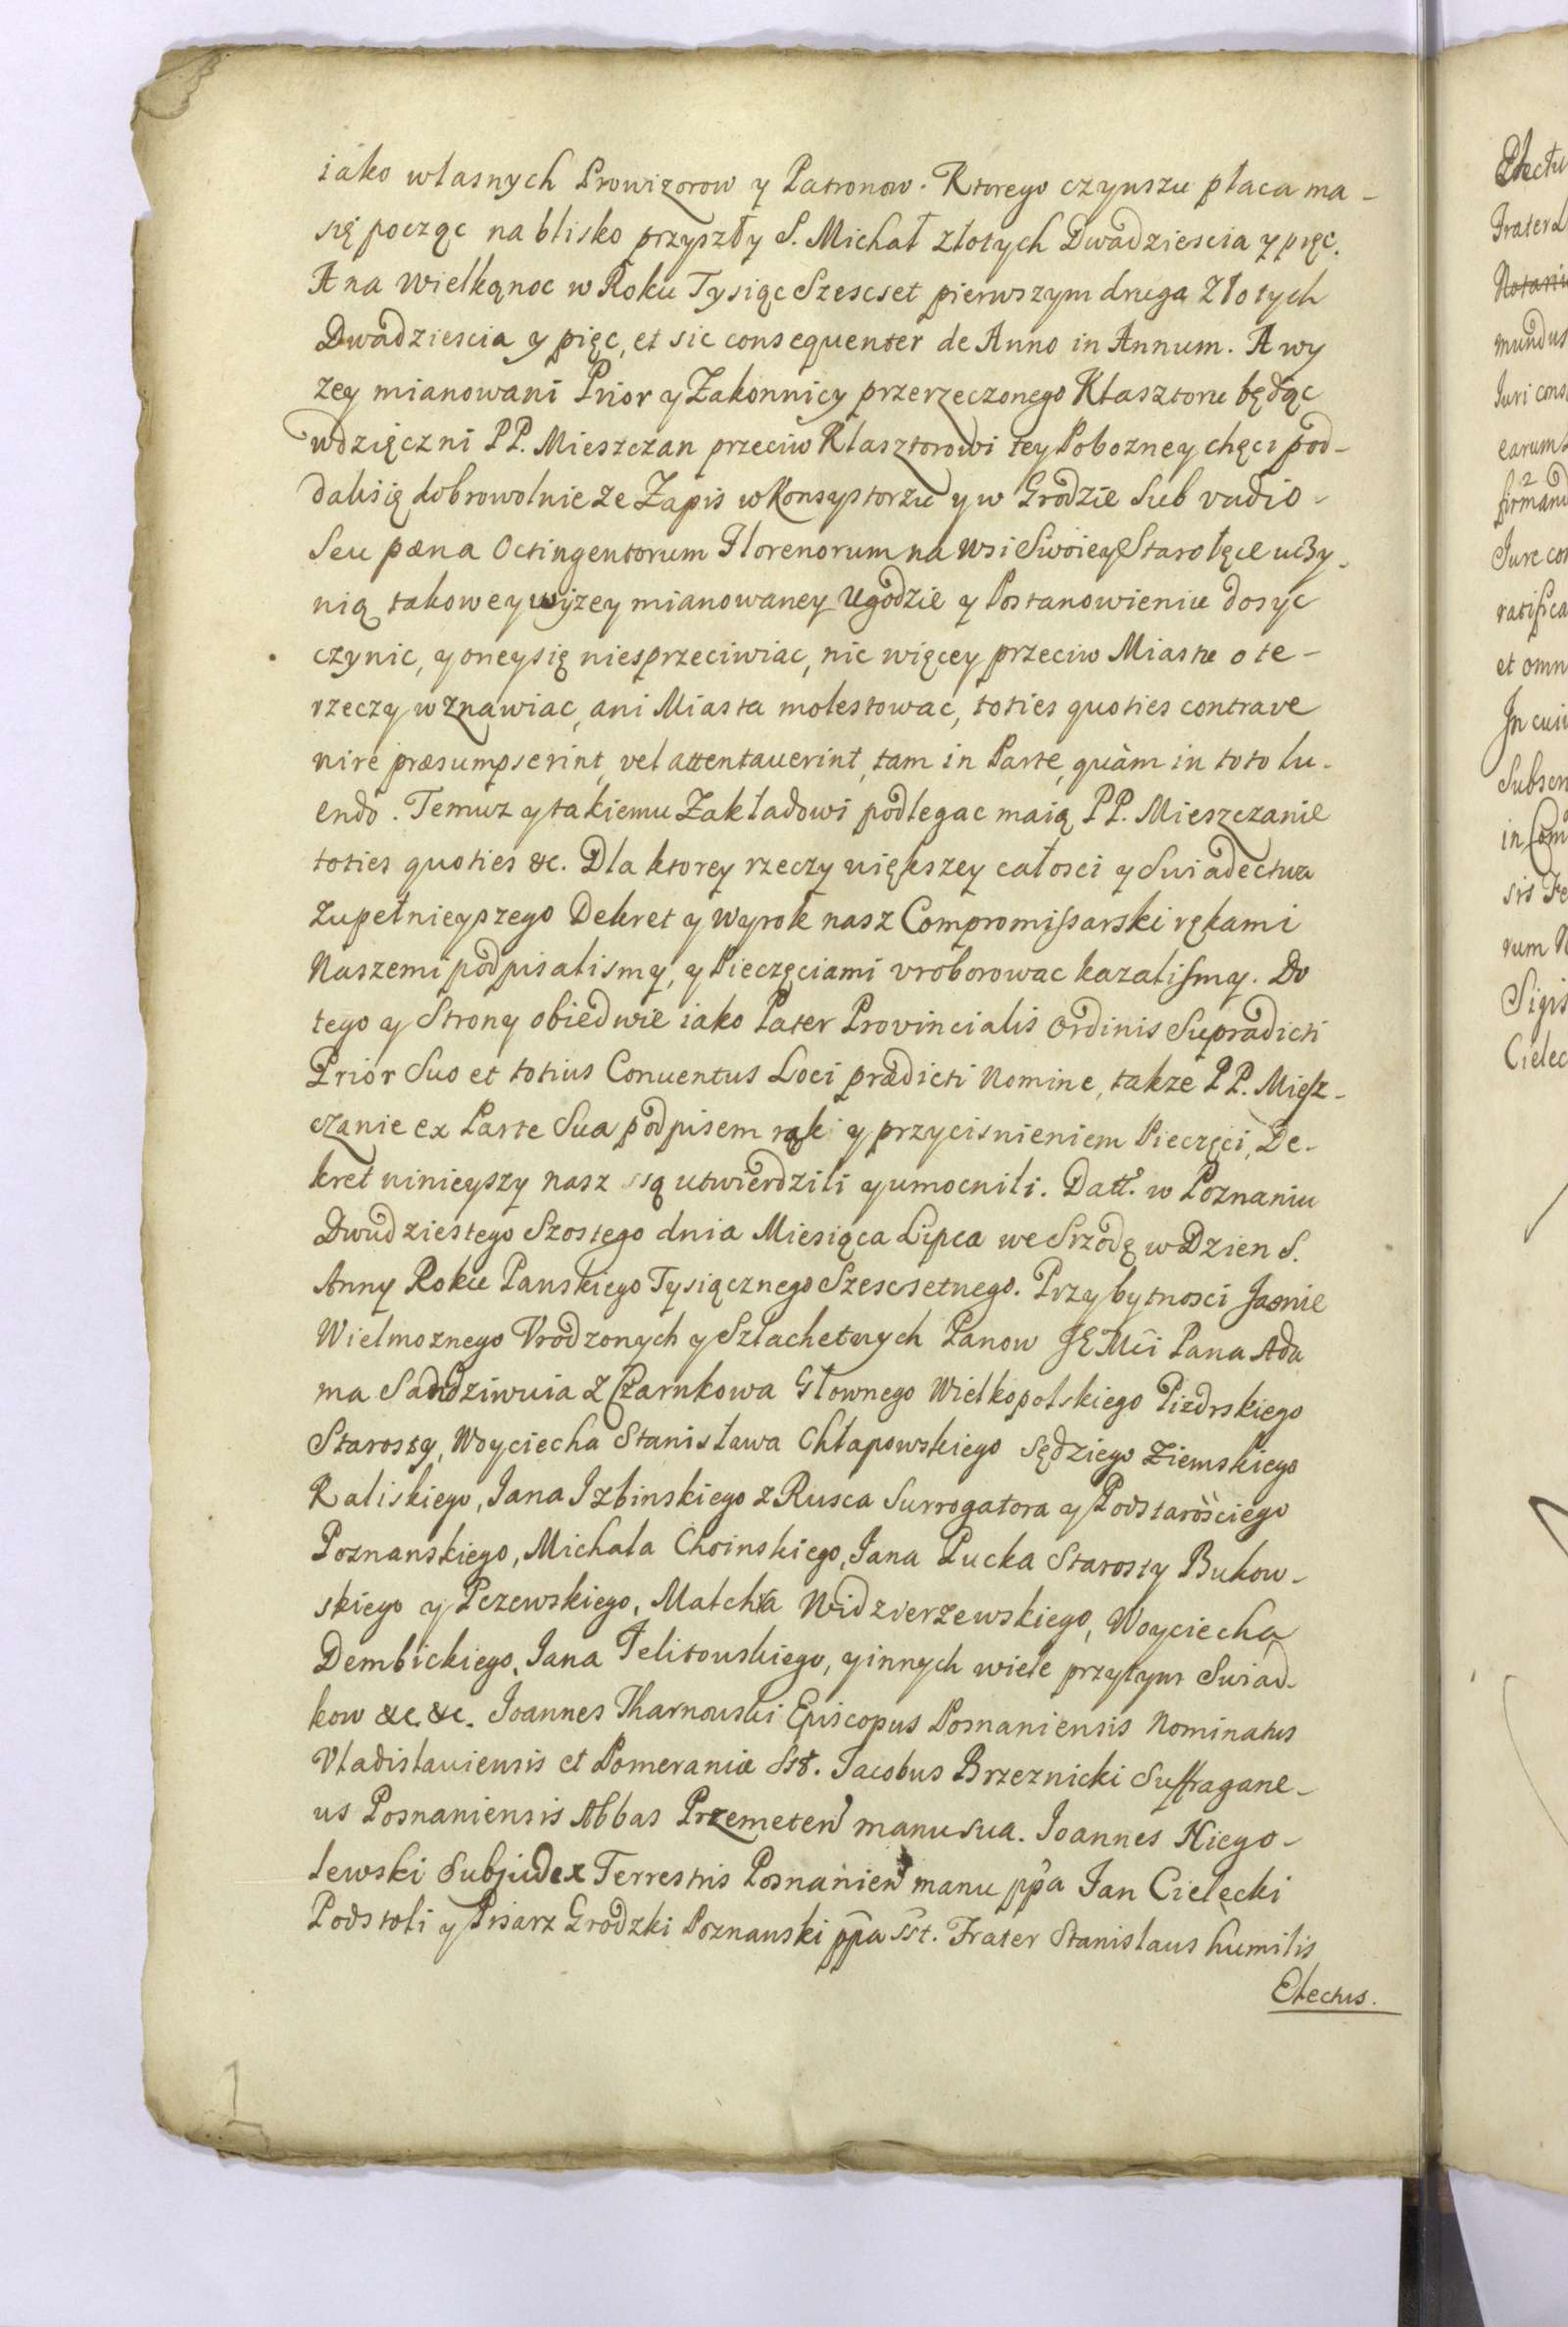 iáko własnych Prowizorow y Patronow. Ktorego czynszu płaca ma-
się począc na blisko przyszły S. Michał złotych Dwadziescia y pięc.
A na Wielkąnoc w Roku Tysiąc Szescset pierwszym druga Złotych
Dwadziescia y pięc, et sic consequenter de Anno in Annum. A wy
zey mianowani Prior y Zakonnicy przerzeczonego Klasztoru będąc
wdzięczni PP. Mieszczan przeciw Klasztorowi tey Pobozney chęci pod-
dali się dobrowolnie ze Zapis w Konsystorzu y w Grodzie sub vadio-
seu pæna Octingentorum Florenorum na Wsi Swoiey Starołęce uczy-
nią takowey wyzey mianowaney Ugodzie y Postanowieniu dosyc
czynic, y oney się niesprzeciwiac, nic więcey przeciw Miastu o te-
rzeczy wznawiac, ani Miasta molestowac, toties quoties contrave
nire præsumpserint, vel attentauerint, tam in Parte, quàm in toto lu-
endo. Temuz y takiemu Zakładowi podlegac maią PP. Mieszczanie
toties quoties &c. Dla ktorey rzeczy większey całosci y Swiadectwa
zupełnieyszego Dekret y Wyrok nasz Compromissarski rękami
Naszemi podpisalismy, y Pieczęciami vroborowac kazalismy. Do
tego y Strony obiedwie iako Pater Provincialis Ordinis Supradicti
Prior Suo et totius Conuentus Loci prædicti Nomine, takze PP. Miesz-
czanie ex Parte Sua podpisem ręki y przycisnieniem Pieczęci, De-
kret ninieyszy nasz są utwierdzili y umocnili. Datt. w Poznaniu
Dwudziestego Szostego dnia Miesiąca Lipca we Srzodę w Dzien S.
Anny Roku Panskiego Tysiącznego Szescsetnego. Przy bytnosci Jasnie
Wielmoznego Vrodzonych y Szlachetnych Panow JE Mći Pana Ada
ma Sandziwuia z Czarnkowa Głownego Wielkopolskiego Pizdrskiego
Starosty, Woyciecha Stanisława Chłapowskiego Sędziego Ziemskiego
Kaliskiego, Jana Izbinskiego z Rusca Surrogatora y Podstarościego
Poznanskiego, Michała Choinskiego, Jana Pucka Starosty Bukow-
skiego y Pczewskiego, Malchra Widzierzewskiego, Woyciecha
Dembickiego, Jana Jelitowskiego, y innych wiele przytym Swiad-
kow &c. &c. Joannes Tharnowski Episcopus Posnaniensis Nominatus
Vladislauiensis et Pomeraniæ Sst. Jacobus Brzeznicki Suffragane-
us Posnaniensis Abbas Przemeten manu sua. Joannes Niego-
lewski Subjudex Terrestris Posnanien manu ppa Jan Cielecki
Podstoli y Pisarz Grodzki Poznanski ppa sst. Frater Stanislaus humilis
Electus.
1
Electu
Frater
Notari
mundus
Juri cons
earum
2
firmand
Jure con
ratifica
et omn
In cui
Subscri
in Com
sis Fe
rum N
Sigis
Cielec